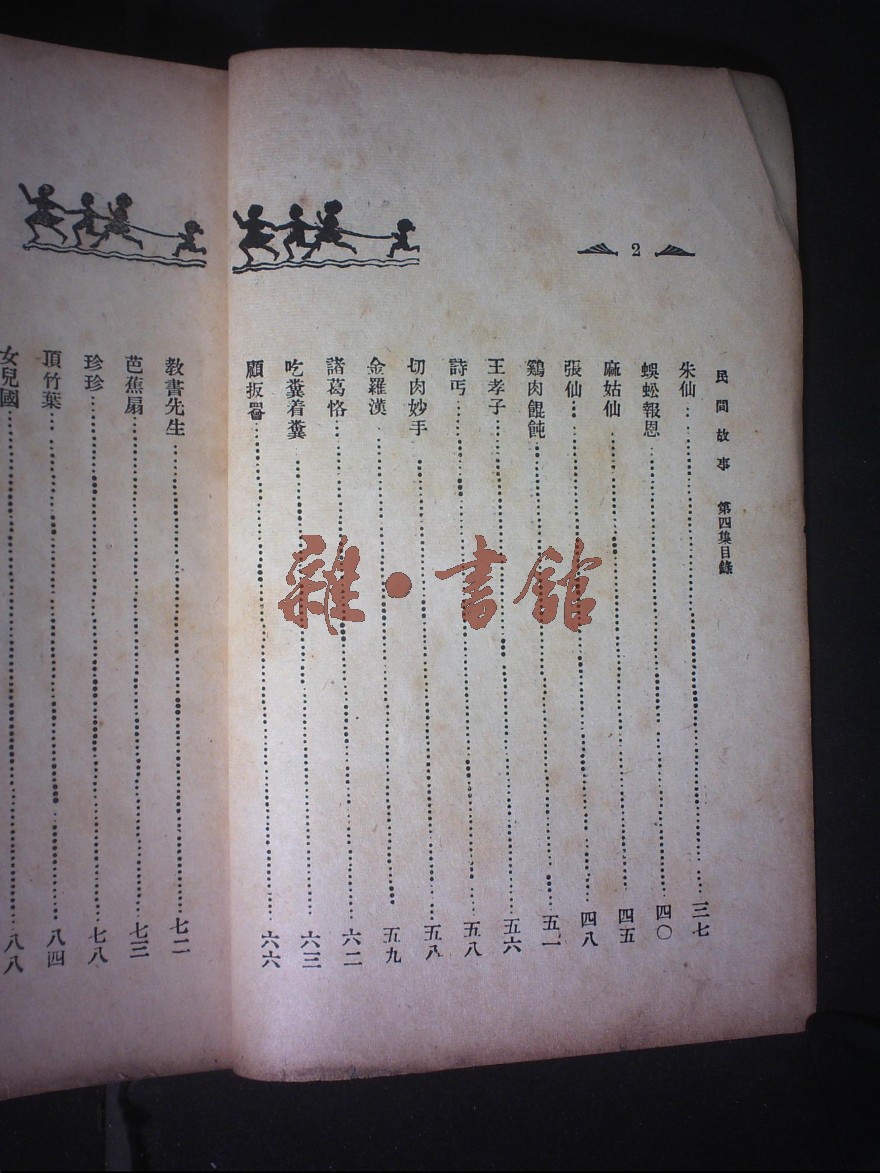 2
民間故事 第四集目錄
朱仙 三七
蜈蚣報恩 四〇
麻姑仙 四五
張仙 四八
鷄肉餛飩 五一
王孝子 五六
詩丐 五八
切肉妙手 五八
金羅漢 五九
諸葛恪 六二
吃糞着糞 六三
顧扳罾 六六
教書先生 七二
芭蕉扇 七三
珍珍 七八
頂竹葉 八四
女兒國 八八
雜·書館